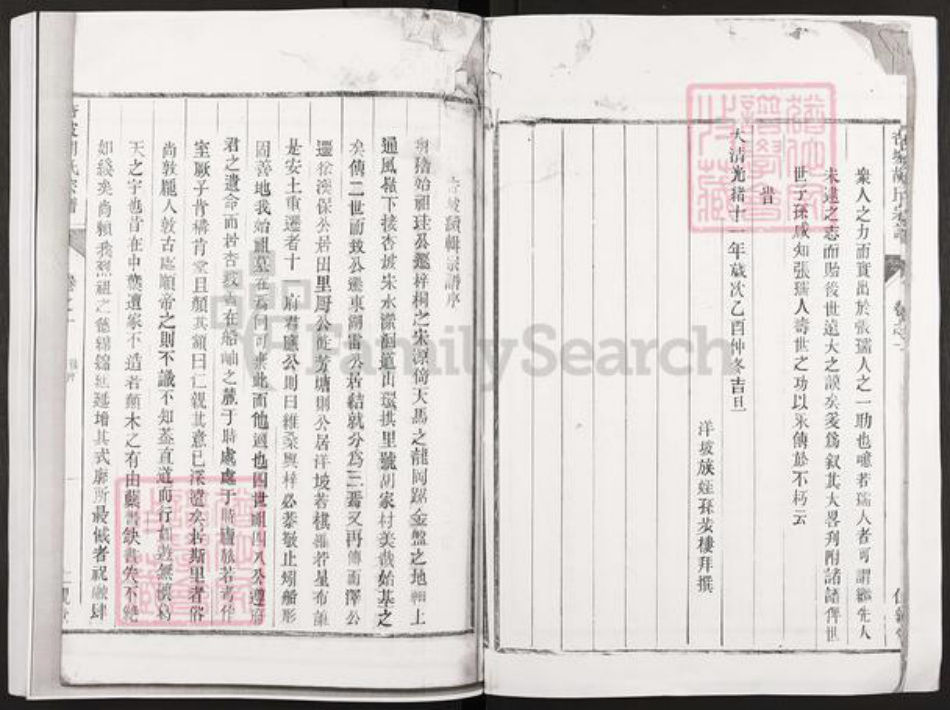 衆人之力而實出於張瑞人之一助也噫若瑞人者可謂繼先人
未逮之志而貽後世遠大之謨矣爰爲叙其大畧刋附諸譜俾世
世子孫咸知張瑞人壽世之功以永傳於不朽云
旹
大清光緒十一年歲次乙酉仲冬吉旦
洋坡族姪孫 樓拜撰
杏坡續輯宗譜序
始祖珪公遷梓桐之朱源倚天馬之龍岡踞金盤之地軸上
通風嶺下接杏坡朱水瀠洄道山環拱里號胡家村美哉始基之
矣傳二世而 公遷東湖雷公居結就分爲三焉又再傳而澤公
遷徐 保公居田里厚公 芳塘則公居洋坡若棋羅若星布
是安土重遷者十 府君廬公則曰維桑與梓必恭敬止 船形
固善地我始祖墓在 何可棄此而他適也四世 四八公遵府
君之遺命而居杏坡 在船岫之麓于時處處于時廬旅若考作
室厥子肯構肯堂且顏其額曰仁親其意已深遠矣居斯里者俗
尚敦龐人敦古處順帝之則不識不知蓋直道而行 無懷葛
天之宇也昔在中葉遭家不造若顛木之有由蘖書缺 失不絶
如綫矣尚賴我烈祖之 延增其式廓所最憾者祝融肆
FamilySearch